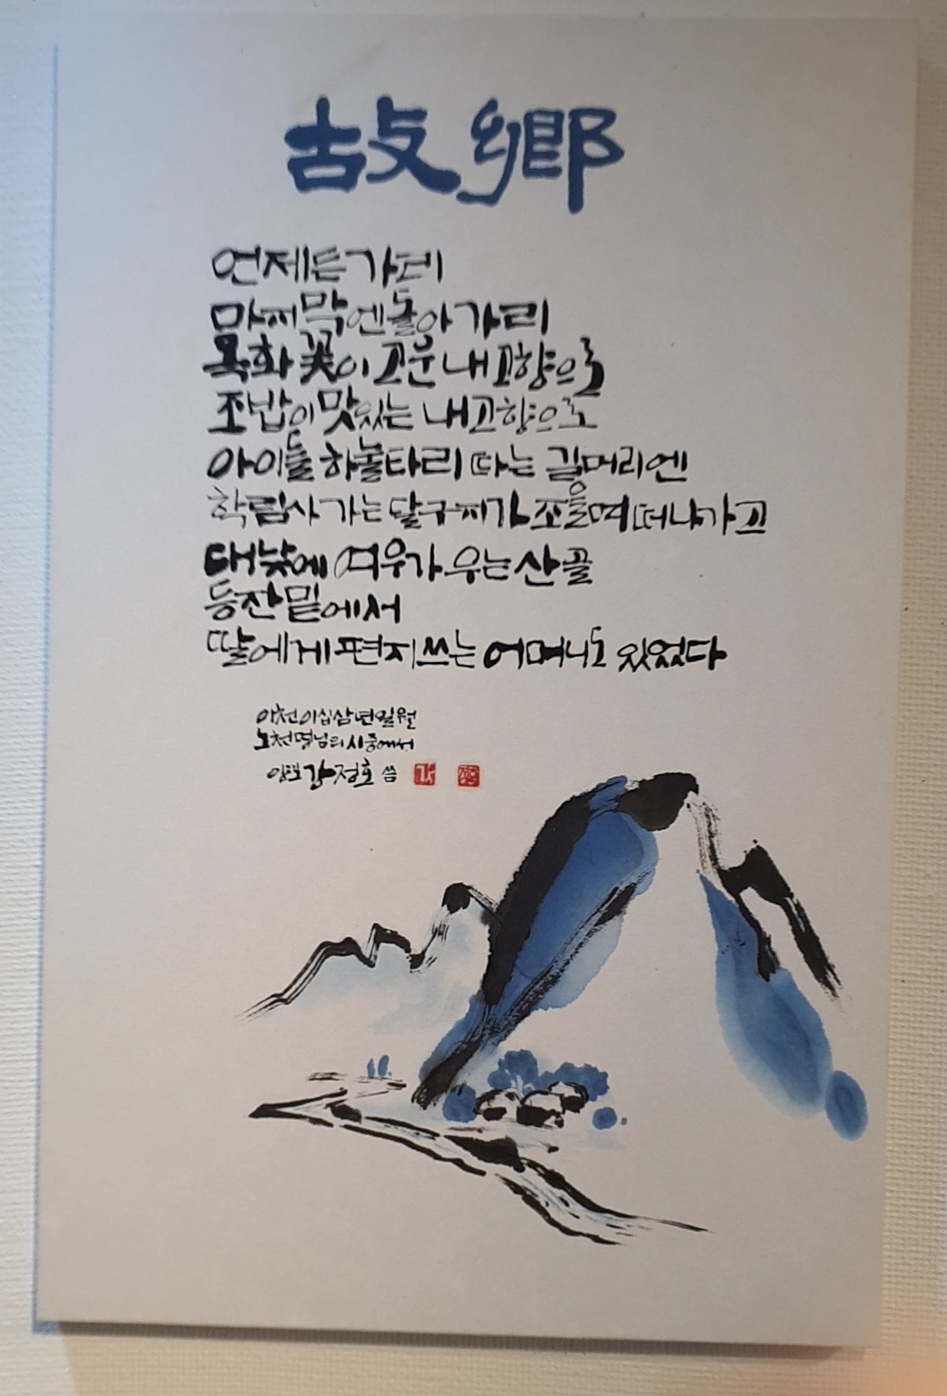 故鄕
언제든 가리
마지막엔 돌아가리
목화 꽃이 고운 내 고향으로
조밥이 맛있는 내 고향으로
아이들 하눌타리 따는 길머리엔
학림사 가는 달구지가 조을며 떠나가고
대낮에 여우가 우는 산골
등잔 밑에서
딸에게 편지 쓰는 어머니도 있었다
이천이십삼년 일월
노천명님의 시 중에서
강정호 씀